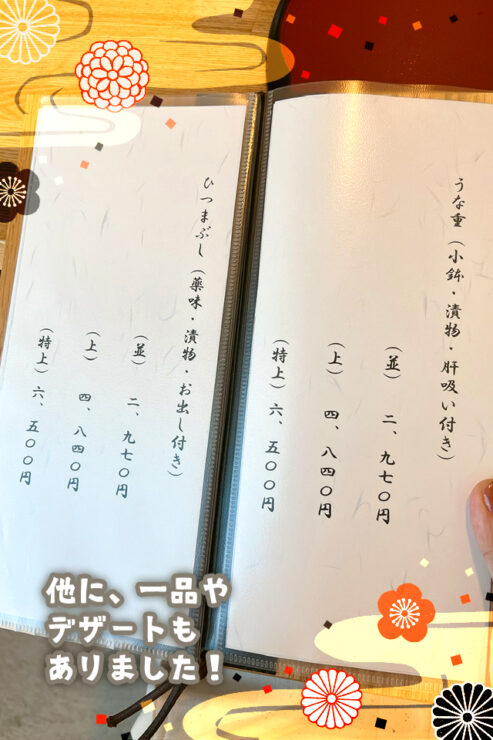 うな重（小鉢・漬物・肝吸い付き）
（並）　二、九七〇円
（上）　四、八四〇円
（特上）六、五〇〇円
ひつまぶし（薬味・漬物・お出し付き）
（並）　二、九七〇円
（上）　四、八四〇円
（特上）六、五〇〇円
他に、一品や
デザートも
ありました！